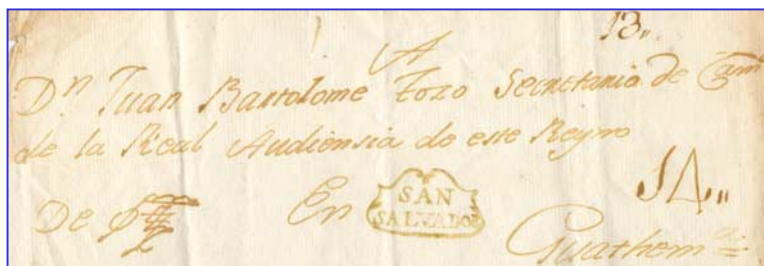 13,,
A
Dn Juan Bartolome Tozo Secretario de Camª
de la Real Audiensia de este Reyno
14,,
De En SAN
SALVADOR
Guathemª